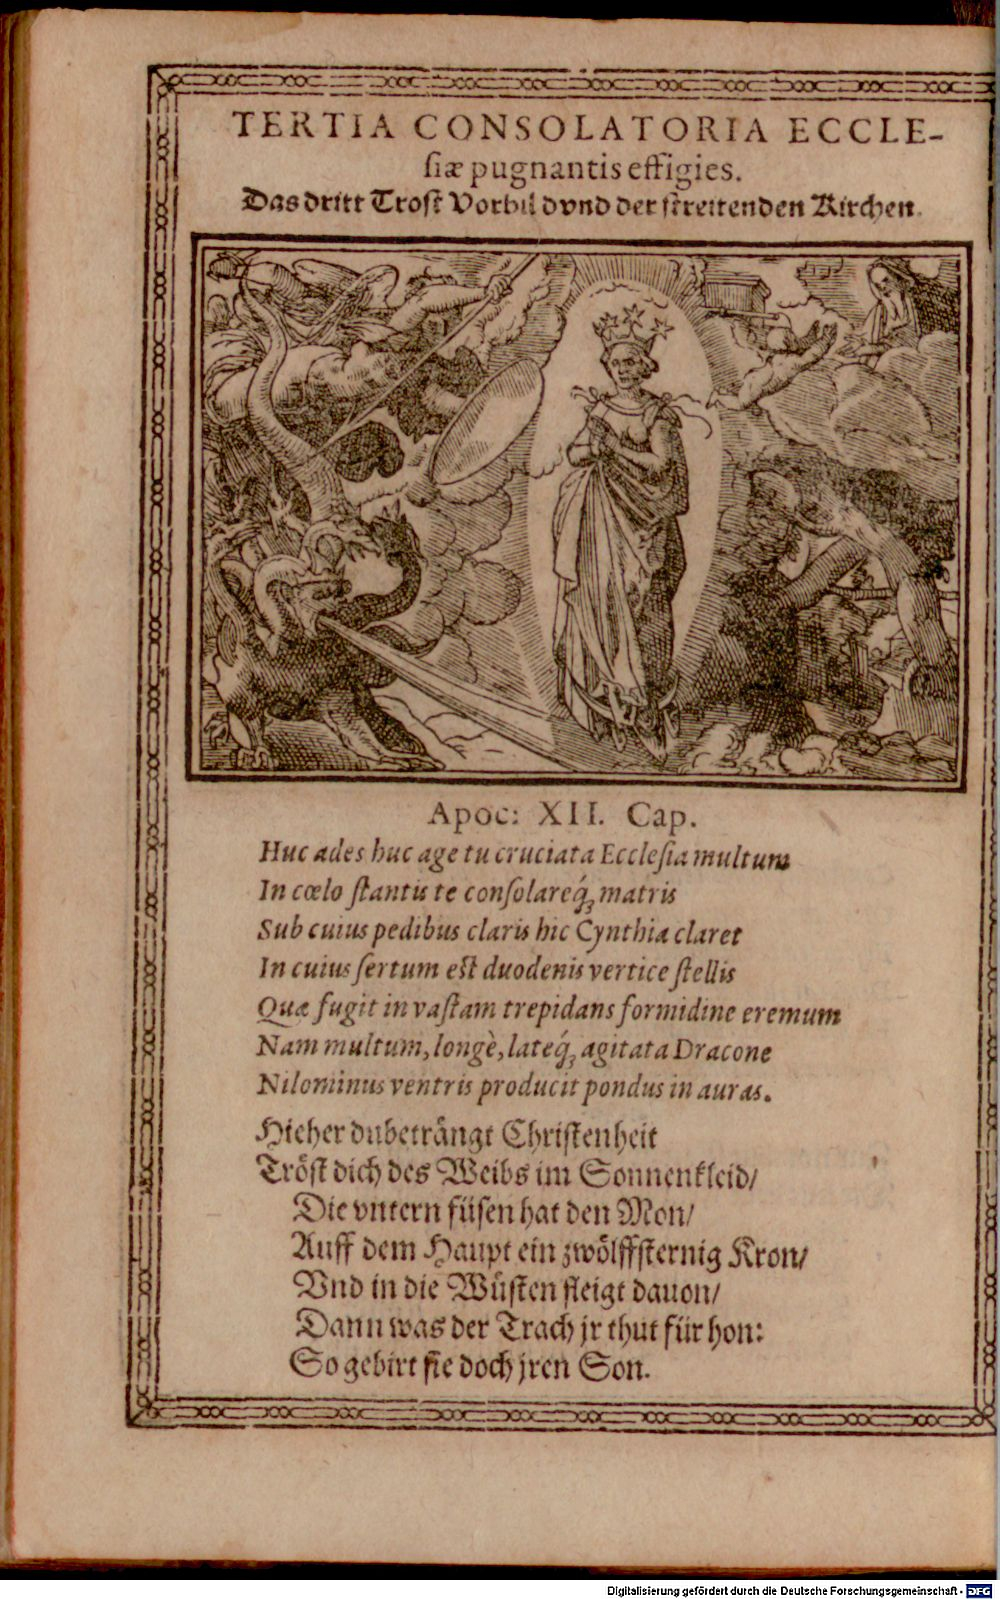 TERTIA CONSOLATORIA ECCLE-
ſiæ pugnantis effigies.
Das dritt Troſt Vorbild vnd der ſtreitenden Kirchen.
Apoc: XII. Cap.
Huc ades huc age tu cruciata Eccleſia multum
In cœlo ſtantis te conſolareq́ꝫ matris
Sub cuius pedibus claris hic Cynthia claret
In cuius ſertum eſt duodenis vertice ſtellis
Quæ fugit in vaſtam trepidans formidine eremum
Nam multum, longè, lateq́ꝫ agitata Dracone
Nilominus ventris producit pondus in auras.
Hieher du beträngt Chriſtenheit
Tröſt dich des Weibs im Sonnenkleid/
Die vntern füſen hat den Mon/
Auff dem Haupt ein zwölffſternig Kron/
Vnd in die Wüſten fleigt dauon/
Dann was der Trach jr thut für hon:
So gebirt ſie doch jren Son.
Digitalisierung gefördert durch die Deutsche Forschungsgemeinschaft - DFG